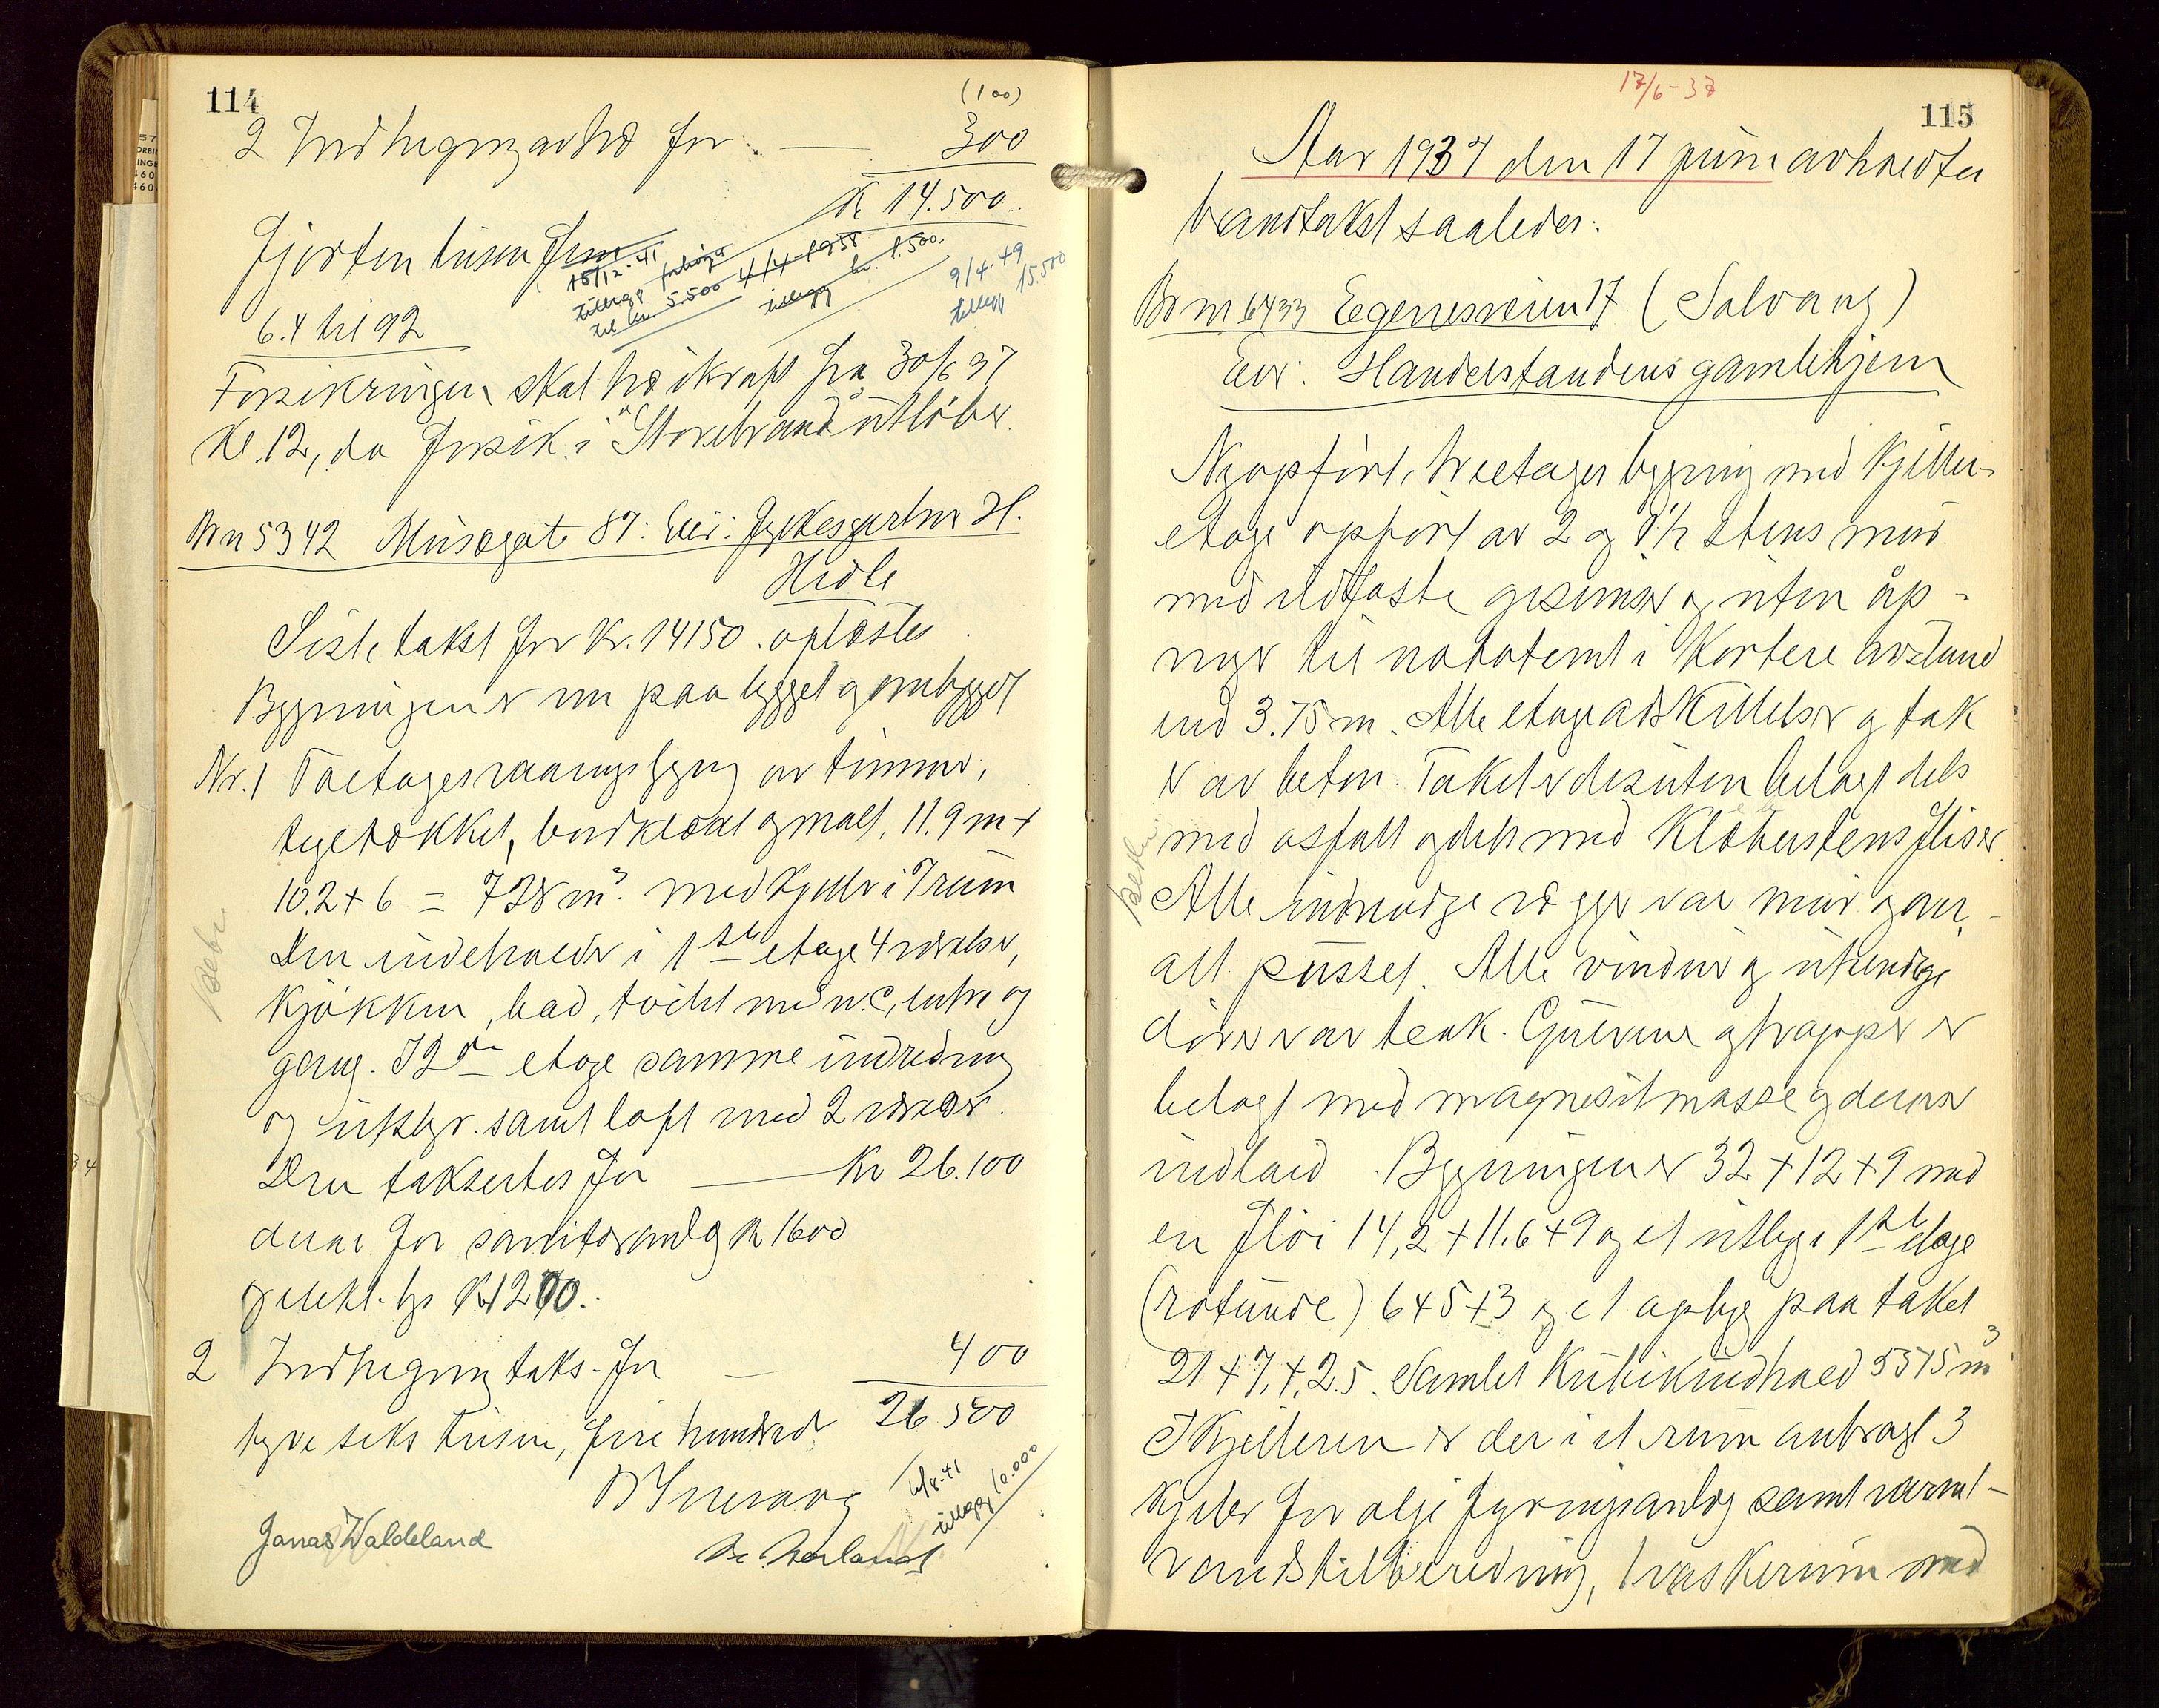 114
(100)
2 Indhegning achd for — 300
K 14.500.
Fjorten tusen fem
15/12-41
tillegg forhöyet
til kr. 5.500 4/4-1938
tillegg kr. 1.500.
9/4-49
tillegg 15.500
6.4 til 92
Forsikringen skal træ ikraft fra 30/6 37
Kl. 12, da forsik. i "Storebrand" utløber.
Br n 5342 Musegate 87: Eier: Gykesgartner H.
Hidle
Siste takst for Kr. 14150. oplæstes
Bygningen er nu paabygget og ombygget
Nr. 1 Toetages vaaningsbygng av tømmer,
tegltækket, bordklædt og malt, 11.9 m +
10.2 + 6 = 728 m³. med kjelder i 7 rum
Den indeholder i 1ste etage 4 værelser,
kjøkken, bad, toilet med w.c, entre og
gang. I 2den etage samme indredning
og utbygn. samt loft med 2 værelser.
Den taksertes for — Kr 26.100
derav for sanitæranlæg K 1600
og elekt. lys K 1200.
2 Indhegning taks. for — 400
26 500
tyve seks tusen, fire hundrede
6/8-41
tillegg 10.000
Jonas Waldeland
115
17/6-37
Aar 1937 den 17 juni avholdtes
brandtakst saaledes:
Br n 6433 Egenesveien 17. (Solvang)
Eier: Handelsstandens gamlehjem
Nyopført, treetages bygning med kjelder-
etage opført av 2 og 1½ stens mur
med ildfaste gesimser og uten åp-
nger til nabotomt i kortere avstand
end 3.75 m. Alle etageadskillelser og tak
er av beton. Taket er desuten belagt dels
med asfalt og dels med Klæberstensfliser.
Alle indvendige vægger var mur og over-
alt pusset. Alle vinduer og utvendige
dører var teak. Gulvene og trapper er
belagt med magnesitmasse og derover
indlaid. Bygningen er 32 + 12 + 9 med
en fløi 14,2 + 11.6 + 9 og et utbyg i 1ste etage
(rotunde) 6 + 5 + 3 og et opbyg paa taket
21 + 7, + 2.5. Samlet Kubikindhold 5575 m³
I Kjelleren er der i et rum anbragt 3
kjeler for olje fyringsanlæg samt varmt-
vandstilberedning, 1 vaskerum med